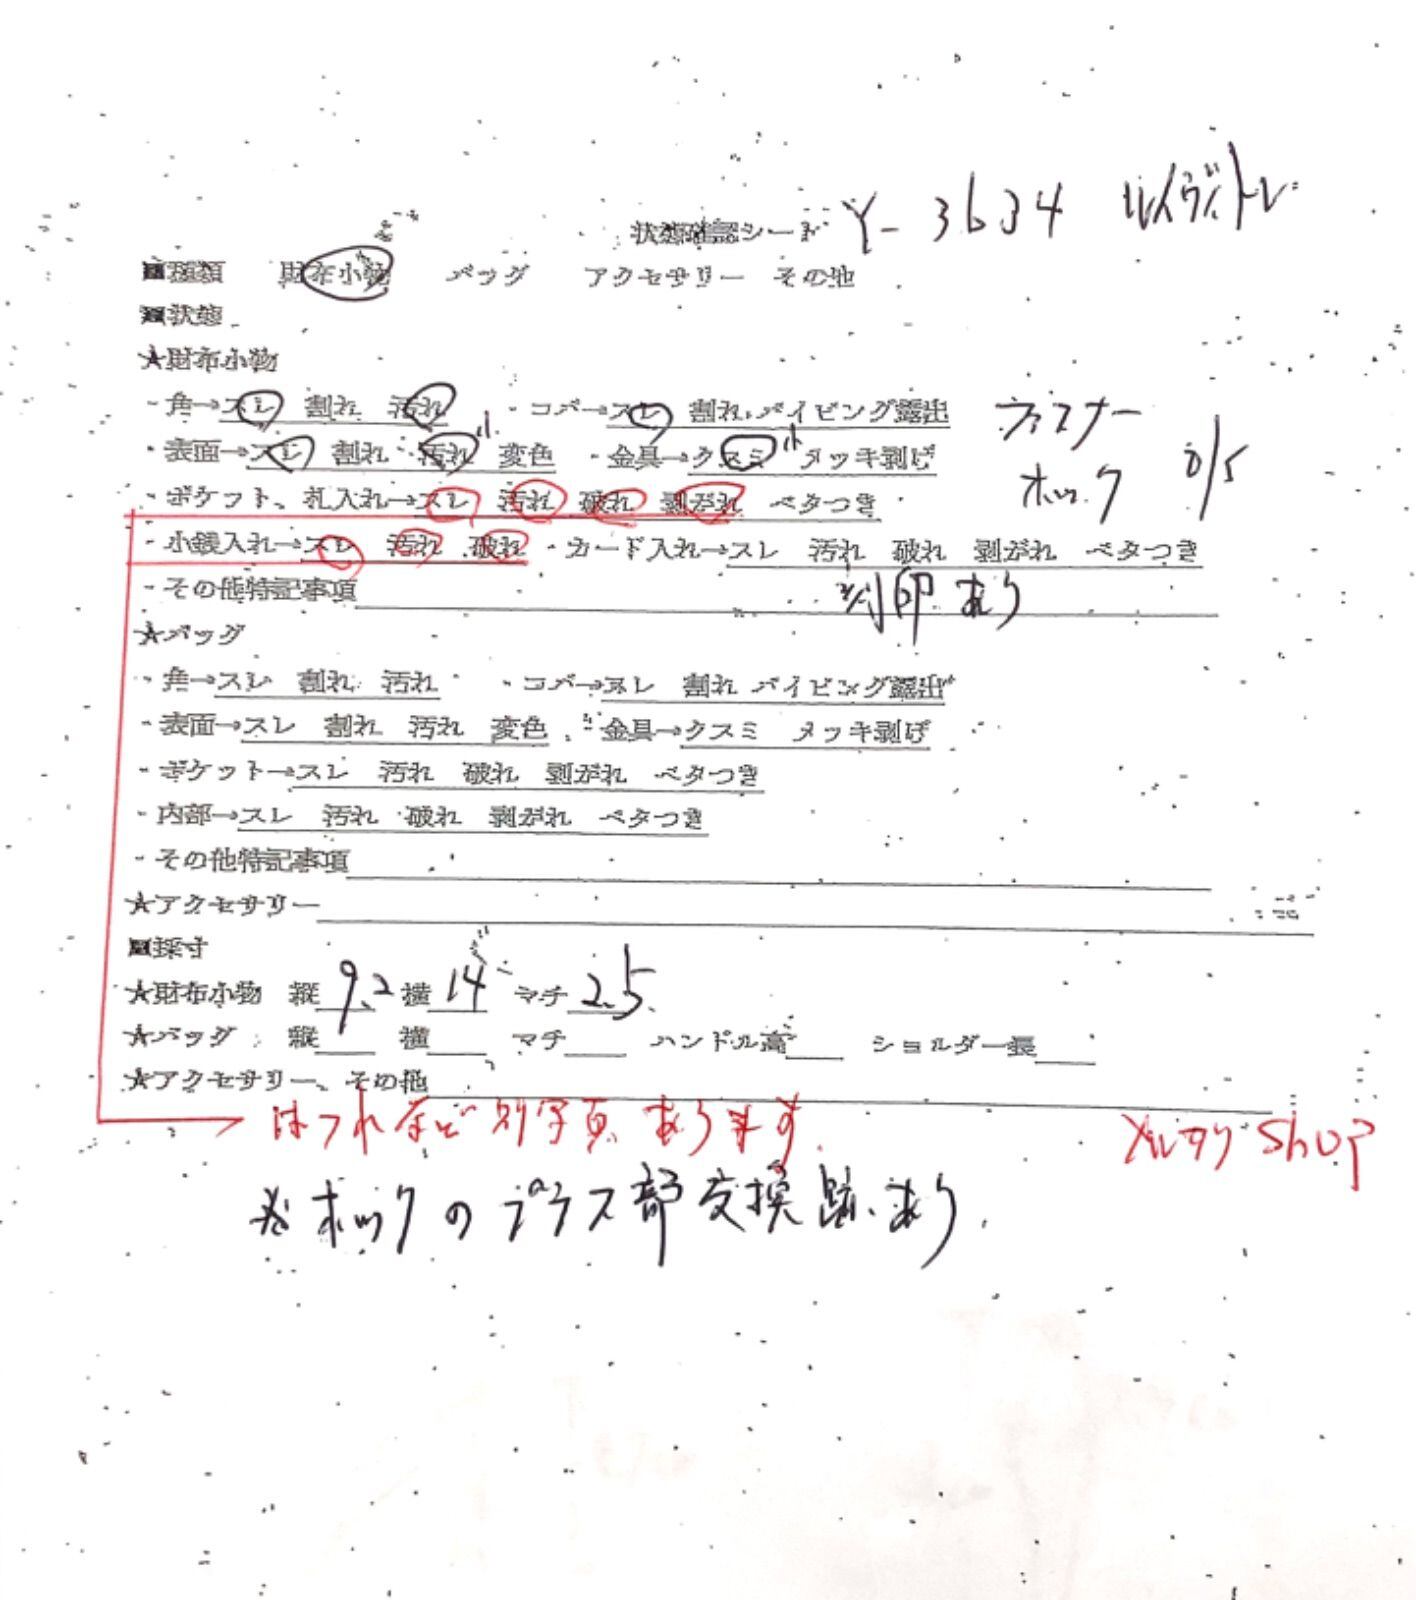 状態確認シート Y-3634 ルイヴィトン
■種類 財布小物 バッグ アクセサリー その他
■状態
★財布小物
・角→スレ 割れ 汚れ ・コバ→スレ 割れ パイピング露出 ファスナー
・表面→スレ 割れ 汚れ小 変色 ・金具→クスミ小 メッキ剥げ ホック
・ポケット、札入れ→スレ 汚れ 破れ 剥がれ ベタつき
・小銭入れ→スレ 汚れ 破れ ・カード入れ→スレ 汚れ 破れ 剥がれ ベタつき
・その他特記事項 刻印あり
★バッグ
・角→スレ 割れ 汚れ ・コバ→スレ 割れ パイピング露出
・表面→スレ 割れ 汚れ 変色 ・金具→クスミ メッキ剥げ
・ポケット→スレ 汚れ 破れ 剥がれ ベタつき
・内部→スレ 汚れ 破れ 剥がれ ベタつき
・その他特記事項
★アクセサリー
■採寸
★財布小物 縦9.2 横14 マチ2.5
★バッグ 縦 横 マチ ハンドル高 ショルダー長
★アクセサリー、その他
ほつれなど別写真あります。 メルカリShop
※ホックのプラス部交換跡あり。